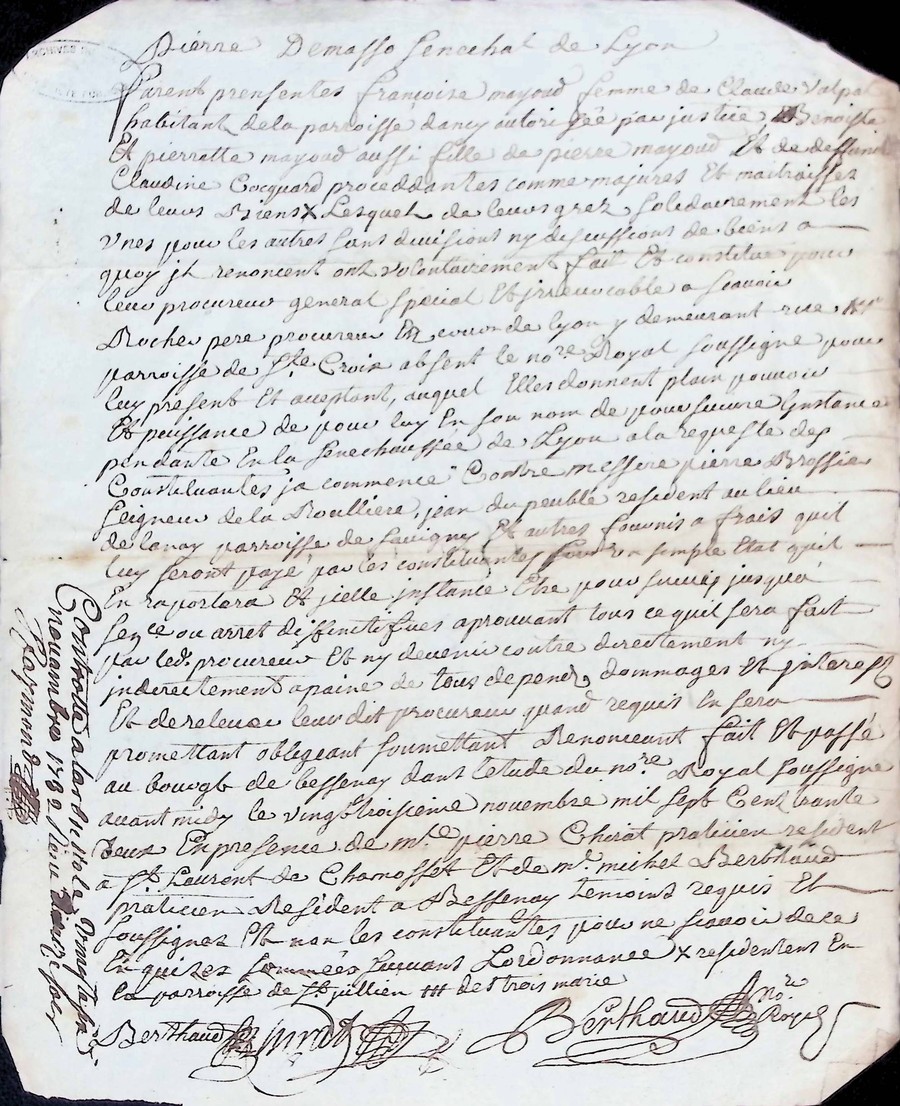 Pierre Demasso Senechal de Lyon
Parent prensentes françoise mayoud femme de Claude Valpal
habitant dela parroisse dancy autorisée par justice, Benoiste
Et pierrette mayoud aussi fille de pierre mayoud Et de deffunte
Claudine Cocquard proceddantes comme majures Et maitraisses
de leurs Biens X Lesquels de leurs grez solidairement les
Unes pour les autres sans divisions ny discussions de biens a
quoy jls renoncent ont volontairement fait Et constitué pour
leur procureur general special Et jrrevocable a scavoir
Roche pere procureur En cour de Lyon y demeurant rue
parroisse de Ste Croix absent le nore Royal soussigne pour
luy present Et aceptant, auquel Elles donnent plain pouvoir
Et puissance de pour luy En son nom de poursuivre Linstance
pendante En la senechaussée de Lyon a la requeste des
Constituantes ja commencé Contre messire pierre Brossier
seigneur dela Roulliere, jean dupeuble resident au lieu
de lanay parroisse de savigny Et autres fournis a frais quil
luy seront payé par les constituantes sur un simple Etat quil
En raportera Et jcelle jnstance Etre poursuivis jusqua
sence ou arret diffinitifves aprouvant tous ce quil sera fait
par led. procureur Et ny devenir contre directement ny
jndirectement apaine de tous depends, dommages Et jnterest
Et de relever leur dit procureur quand requis En sera
promettant obligeant soumettant Renonceant fait Et passé
au bourgt de bessenay dans letude du nore Royal soussigne
avant midy le vingttroisieme novembre mil sept Cent trante
Deux En presence de mre pierre Chirat praticien resident
a St Laurent de Chamosset Et de mr michel Berthaud
praticien Resident a Bessenay temoins requis Et
soussignez Et non les constituantes pour ne scavoir de ce
Enquises sommées suivans Lordonnance X residentens En
la parroisse de St jullien de strois marie
Berthaud Chirat Berthaud nore Royal
Controllé a
novembre 1732
Raymond